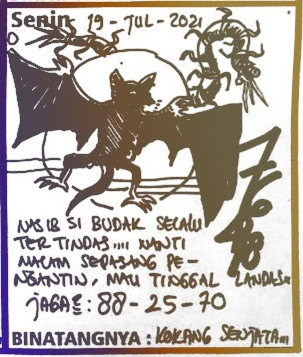 Senin 19 - JUL - 2021
NASIB SI BUDAK SELALU
TERTINDAS.... NANTI
MALAM SEPASANG PE-
NGANTIN, MAU TINGGAL LANDAS..
JAGA2 : 88 - 25 - 70
BINATANGNYA : KOKANG SENJATA...